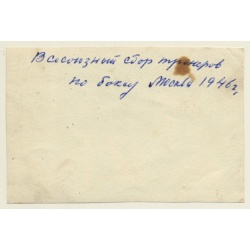 Всесоюзный сбор тренеров
по боксу Москва 1946 г.